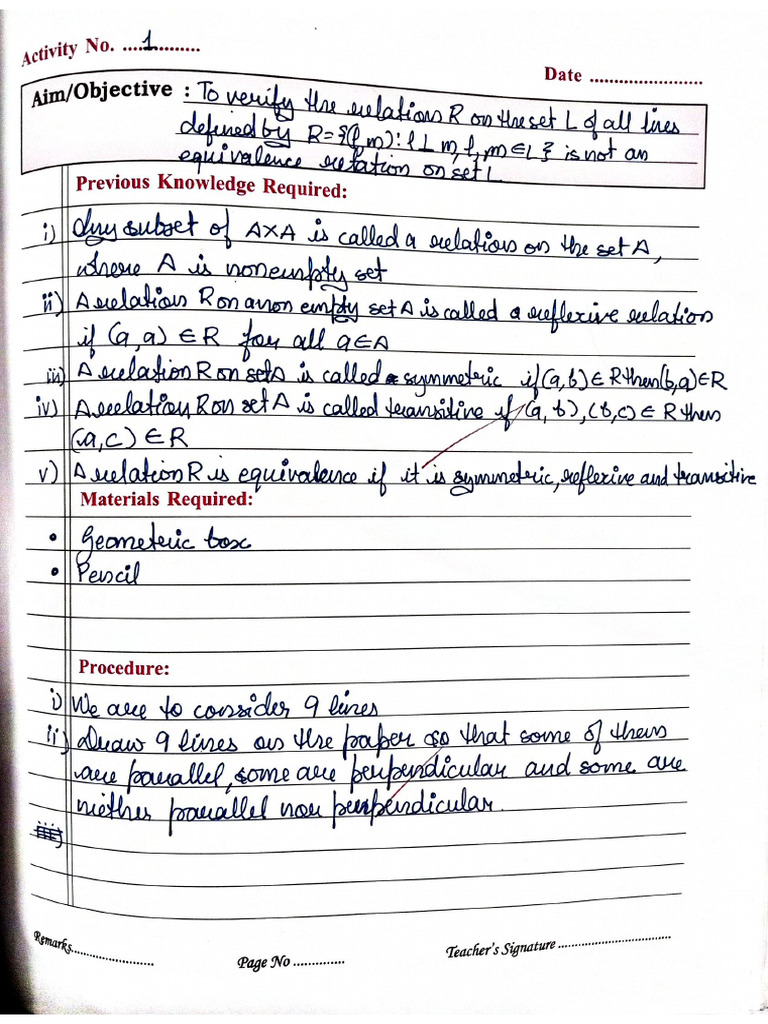 Activity No. ....1.........
Date ......................
Aim/Objective : To verify the relation R on the set L of all lines
defined by R={(l,m): l⊥m, l,m∈L} is not an
equivalence relation on set L.
Previous Knowledge Required:
i) Any subset of A×A is called a relation on the set A,
where A is nonempty set
ii) A relation R on a non empty set A is called a reflexive relation
if (a,a) ∈ R for all a∈A
iii) A relation R on set A is called a symmetric if (a,b) ∈ R then (b,a) ∈ R
iv) A relation R on set A is called transitive if (a,b), (b,c) ∈ R then
(a,c) ∈ R
v) A relation R is equivalence if it is symmetric, reflexive and transitive
Materials Required:
• Geometeric box
• Pencil
Procedure:
i) We are to consider 9 lines
ii) Draw 9 lines on the paper so that some of them
are parallel, some are perpendicular and some are
niether parallel nor perpendicular.
Remarks........................
Page No ..............
Teacher's Signature ..................................